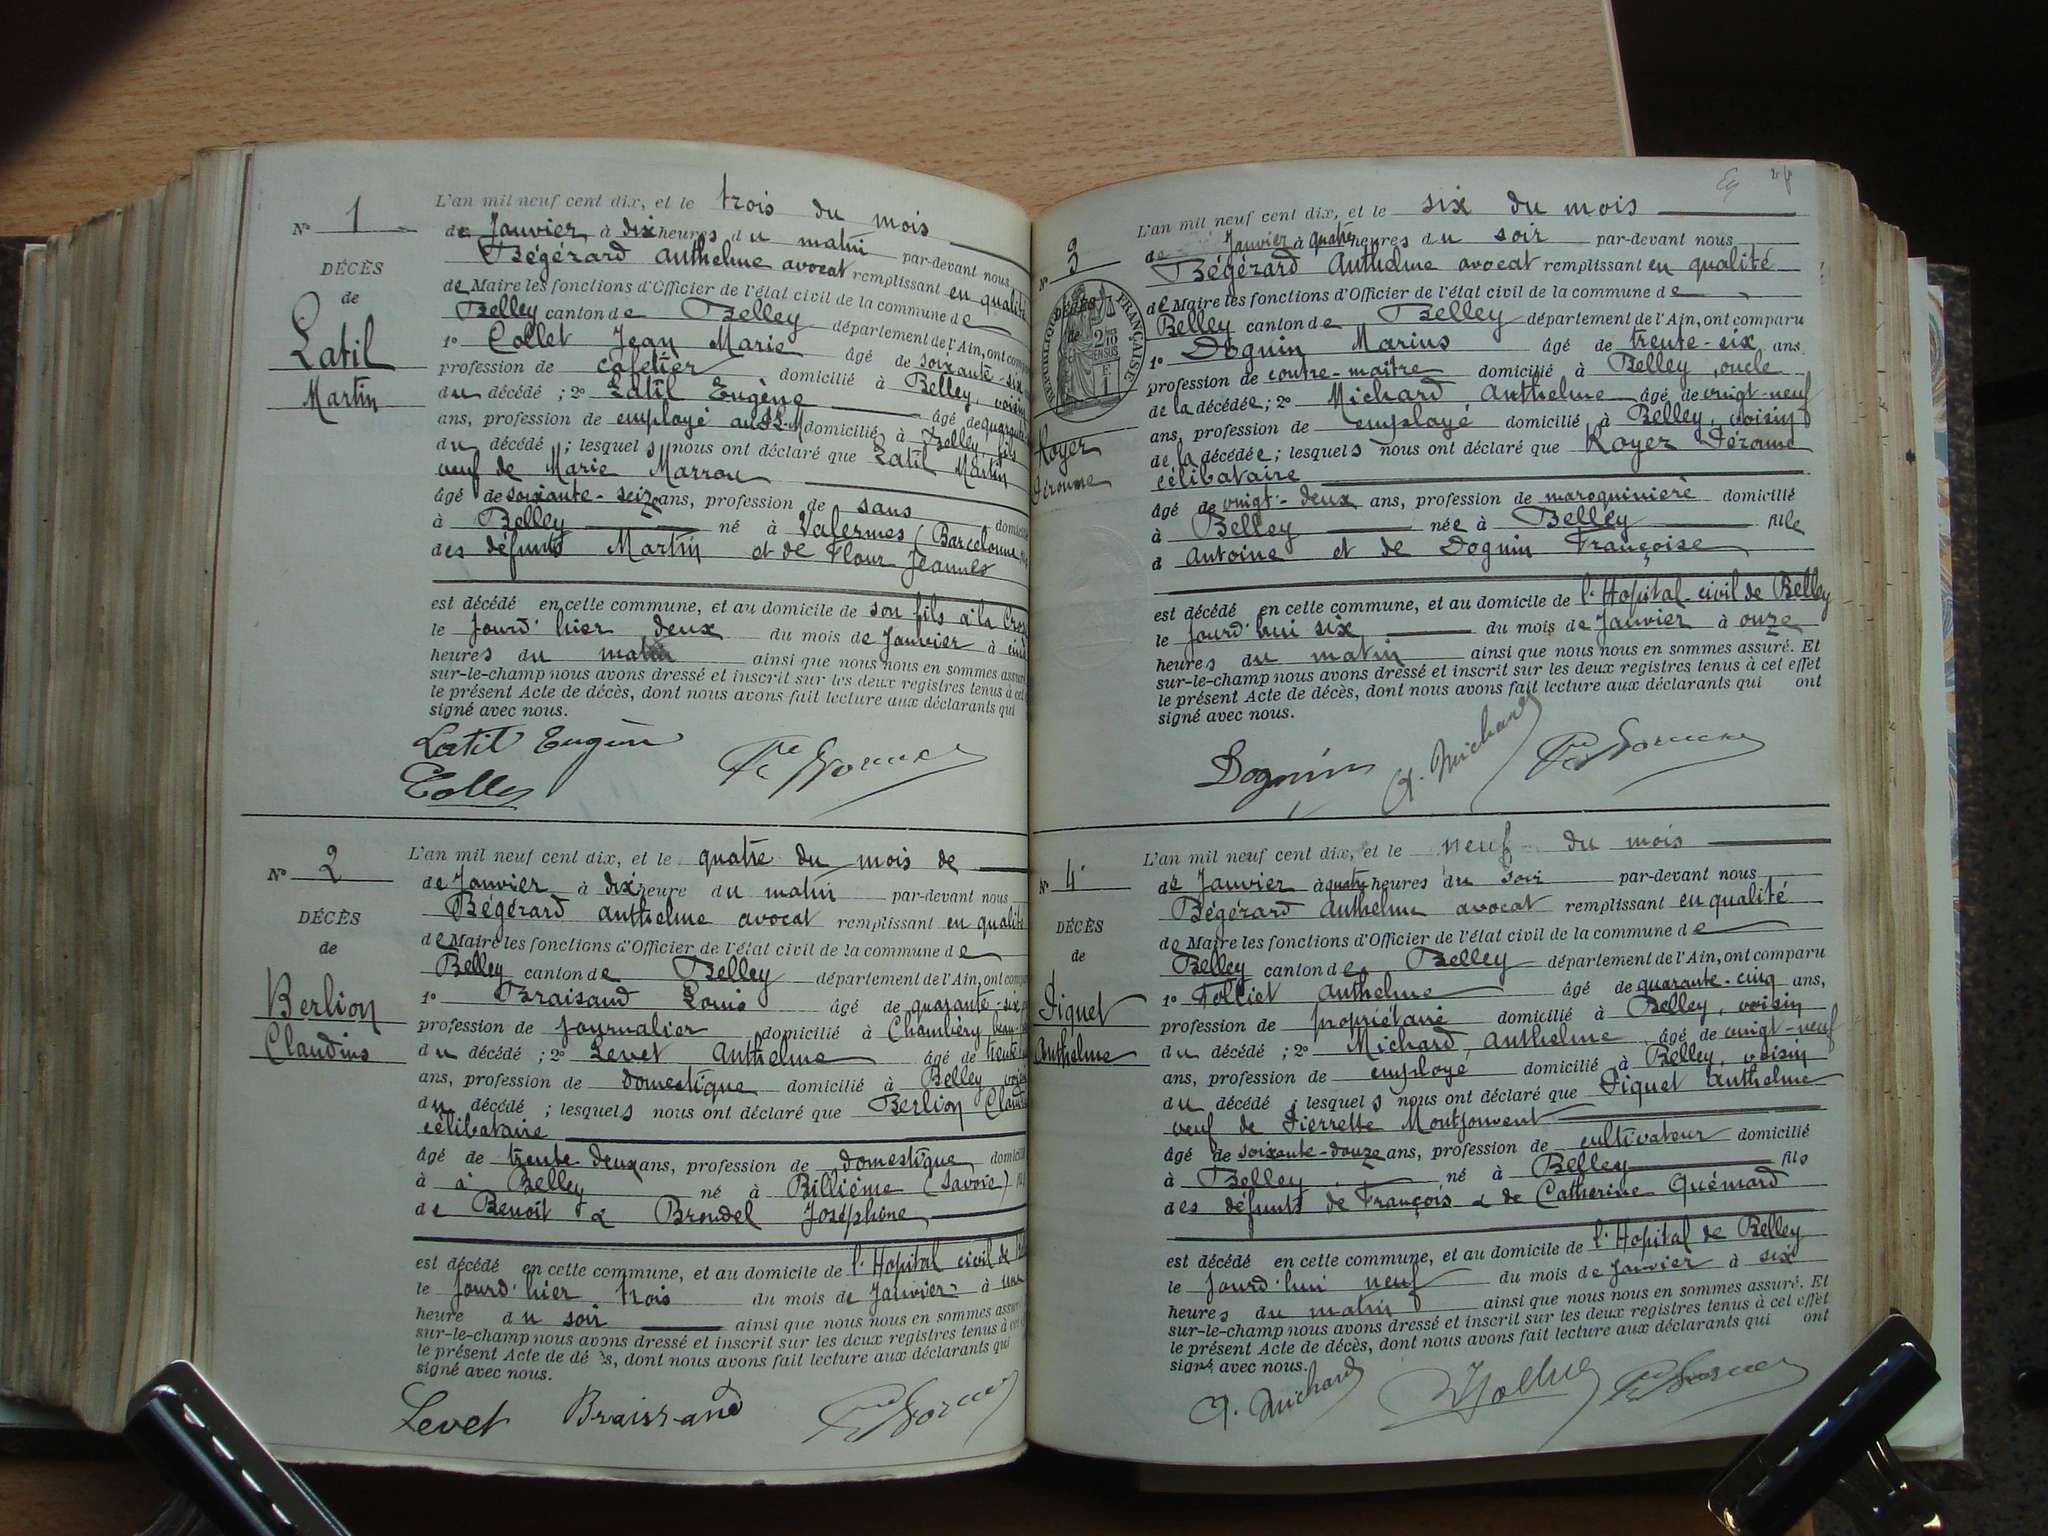 N° 1
DÉCÈS
de
Latil
Martin
L'an mil neuf cent dix, et le trois du mois
de Janvier à dix heures du matin par-devant nous
Bégérard Anthelme avocat remplissant en qualité
de Maire les fonctions d'Officier de l'état civil de la commune de
Belley canton de Belley département de l'Ain, ont
1° Collet Jean Marie âgé de soixante-six
profession de cafetier domicilié à Belley, voisin
du décédé ; 2° Latil Eugène âgé de
ans, profession de employé au domicilié à Belley, fils
du décédé ; lesquels nous ont déclaré que Latil Martin
veuf de Marie Marrou
âgé de soixante-seize ans, profession de sans
à Belley né à Valermes (Barcelonne
des défunts Martin et de Flour Jeannes
est décédé en cette commune, et au domicile de son fils à la
le jourd'hier deux du mois de Janvier à
heures du matin ainsi que nous nous en sommes assuré
sur-le-champ nous avons dressé et inscrit sur les deux registres tenus à cet
le présent Acte de décès, dont nous avons fait lecture aux déclarants qui
signé avec nous.
Latil Eugène
N° 2
DÉCÈS
de
Berlion
Claudius
L'an mil neuf cent dix, et le quatre du mois de
de Janvier à dix heure du matin par-devant nous
Bégérard Anthelme avocat remplissant en qualité
de Maire les fonctions d'Officier de l'état civil de la commune de
Belley canton de Belley département de l'Ain, ont
1° Braisand Louis âgé de quarante-six
profession de journalier domicilié à Chambéry
du décédé ; 2° Levet Anthelme âgé de
ans, profession de domestique domicilié à Belley
du décédé ; lesquels nous ont déclaré que Berlion
célibataire
âgé de trente deux ans, profession de domestique
à à Belley né à Billième (Savoie)
de Benoît & Broudel Joséphine
est décédé en cette commune, et au domicile de l'Hopital civil de
le jourd'hier trois du mois de Janvier à une
heure du soir ainsi que nous nous en sommes assuré
sur-le-champ nous avons dressé et inscrit sur les deux registres tenus à cet
le présent Acte de décès, dont nous avons fait lecture aux déclarants qui
signé avec nous.
Levet Braissand
N° 3
DÉCÈS
de
RÉPUBLIQUE FRANÇAISE
Royer
Jéromme
L'an mil neuf cent dix, et le six du mois
de Janvier à quatre heures du soir par-devant nous
Bégérard Anthelme avocat remplissant en qualité
de Maire les fonctions d'Officier de l'état civil de la commune de
Belley canton de Belley département de l'Ain, ont comparu
1° Dognin Marius âgé de trente-six ans
profession de contre-maître domicilié à Belley, oncle
de la décédée ; 2° Michard Anthelme âgé de vingt-neuf
ans, profession de employé domicilié à Belley, voisin
de la décédée ; lesquels nous ont déclaré que Royer Jéromme
célibataire
âgé de vingt-deux ans, profession de maroquinière domicilié
à Belley née à Belley fille
d Antoine et de Dognin Françoise
est décédé en cette commune, et au domicile de l'Hopital civil de Belley
le jourd'hui six du mois de Janvier à onze
heures du matin ainsi que nous nous en sommes assuré. Et
sur-le-champ nous avons dressé et inscrit sur les deux registres tenus à cet effet
le présent Acte de décès, dont nous avons fait lecture aux déclarants qui ont
signé avec nous.
Dognin A. Michard
N° 4
DÉCÈS
de
Piquet
Anthelme
L'an mil neuf cent dix, et le neuf du mois
de Janvier à quatre heures du soir par-devant nous
Bégérard Anthelme avocat remplissant en qualité
de Maire les fonctions d'Officier de l'état civil de la commune de
Belley canton de Belley département de l'Ain, ont comparu
1° Tolliet Anthelme âgé de quarante-cinq ans,
profession de propriétaire domicilié à Belley, voisin
du décédé ; 2° Michard, Anthelme âgé de vingt-neuf
ans, profession de employé domicilié à Belley, voisin
du décédé ; lesquels nous ont déclaré que Piquet Anthelme
veuf de Pierrette Montjouvent
âgé de soixante-douze ans, profession de cultivateur domicilié
à Belley né à Belley fils
des défunts de François & de Catherine Quémard
est décédé en cette commune, et au domicile de l'Hopital de Belley
le jourd'hui neuf du mois de Janvier à six
heures du matin ainsi que nous nous en sommes assuré. Et
sur-le-champ nous avons dressé et inscrit sur les deux registres tenus à cet effet
le présent Acte de décès, dont nous avons fait lecture aux déclarants qui ont
signé avec nous.
A. Michard